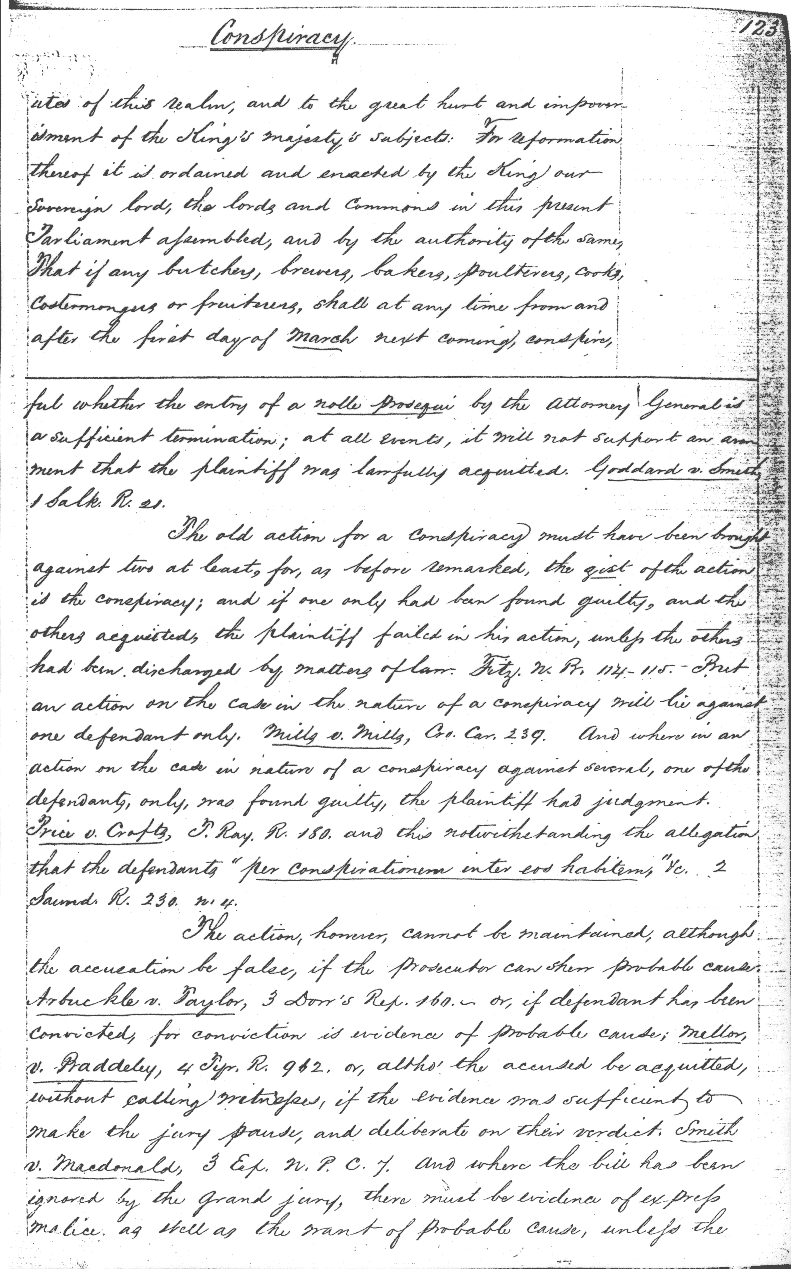 Conspiracy.
123
ates of this realm, and to the great hurt and impover-
isment of the King's majesty's subjects: For reformation
thereof it is ordained and enacted by the King our
Sovereign lord, the lords and Commons in this present
Parliament assembled, and by the authority of the same,
That if any butchers, brewers, bakers, poulterers, cooks,
Costermongers or fruiterers, shall at any time from and
after the first day of March next coming, conspire,
ful whether the entry of a nolle prosequi by the Attorney General is
a sufficient termination; at all events, it will not support an aver
ment that the plaintiff was lawfully acquitted. Goddard v. Smith,
1 Salk. R. 21.
The old action for a conspiracy must have been brought
against two at least, for, as before remarked, the gist of the action
is the conspiracy; and if one only had been found guilty, and the
others acquitted, the plaintiff failed in his action, unless the others
had been discharged by matters of law. Fitz. N. B. 114-115.- But
an action on the case in the nature of a conspiracy will lie against
one defendant only. Mills v. Mills, Cro. Car. 239. And where in an
action on the case in nature of a conspiracy against several, one of the
defendants, only, was found guilty, the plaintiff had judgment.
Price v. Crofts, T. Ray. R. 180. and this notwithstanding the allegation
that the defendants "per conspirationem inter eos habitem," &c. 2
Saund. R. 230. n. 4.
The action, however, cannot be maintained, although
the accusation be false, if the prosecutor can shew probable cause.
Arbuckle v. Taylor, 3 Dow's Rep. 160. or, if defendant has been
convicted, for conviction is evidence of probable cause; Mellor,
v. Baddeley, 4 Tyr. R. 962. or, altho' the accused be acquitted,
without calling witnesses, if the evidence was sufficient to
make the jury pause, and deliberate on their verdict. Smith
v. Macdonald, 3 Esp. N. P. C. 7. And where the bill has been
ignored by the grand jury, there must be evidence of express
malice. as well as the want of probable cause, unless the